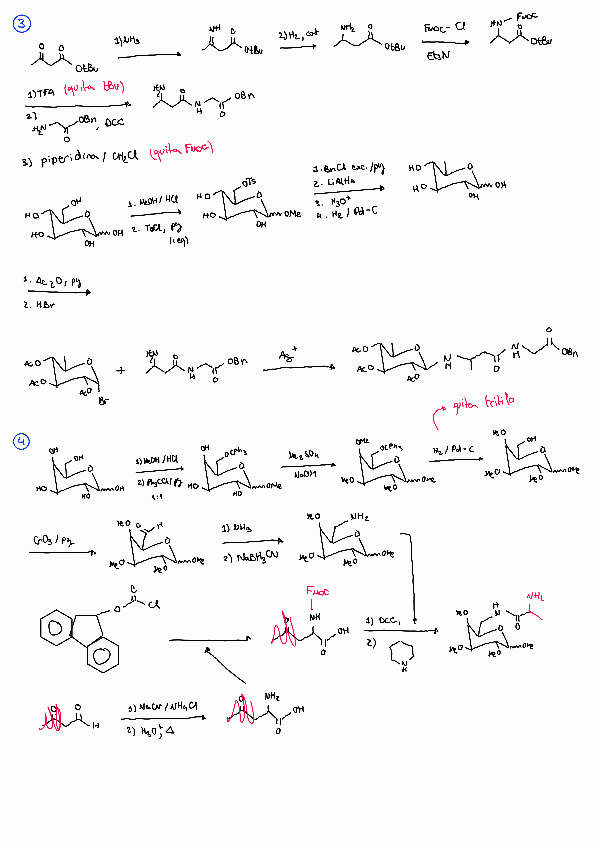 3
O O OtBu 1) NH3 NH O OtBu 2) H2, cat NH2 O OtBu Fmoc-Cl Et3N HN-Fmoc O OtBu
1) TFA (quita tBu)
2) H2N OBn O, DCC
H2N O N H O OBn
3) piperidina / CH2Cl (quita Fmoc)
HO OH O HO OH OH 1. MeOH / HCl 2. TsCl, py (1 eq) HO OTs O HO OH OMe 1. BnCl exc. / py 2. LiAlH4 3. H3O+ 4. H2 / Pd-C HO O HO OH OH
1. Ac2O, py
2. HBr
AcO O AcO AcO Br + H2N O N H O OBn Ag+ AcO O AcO AcO N H O N H O OBn
quita tritilo
4
OH OH O HO HO OH 1) MeOH / HCl 2) Ph3CCl / py 1:1 OH OCPh3 O HO HO OMe Me2SO4 NaOH OMe OCPh3 O MeO MeO OMe H2 / Pd-C MeO OH O MeO MeO OMe
CrO3 / py MeO O H O MeO MeO OMe 1) NH3 2) NaBH3CN MeO NH2 O MeO MeO OMe
O O Cl Fmoc NH OH O 1) DCC, 2) N H MeO H N O NH2 O MeO MeO OMe
O O H 1) NaCN / NH4Cl 2) H3O+, Δ O NH2 OH O